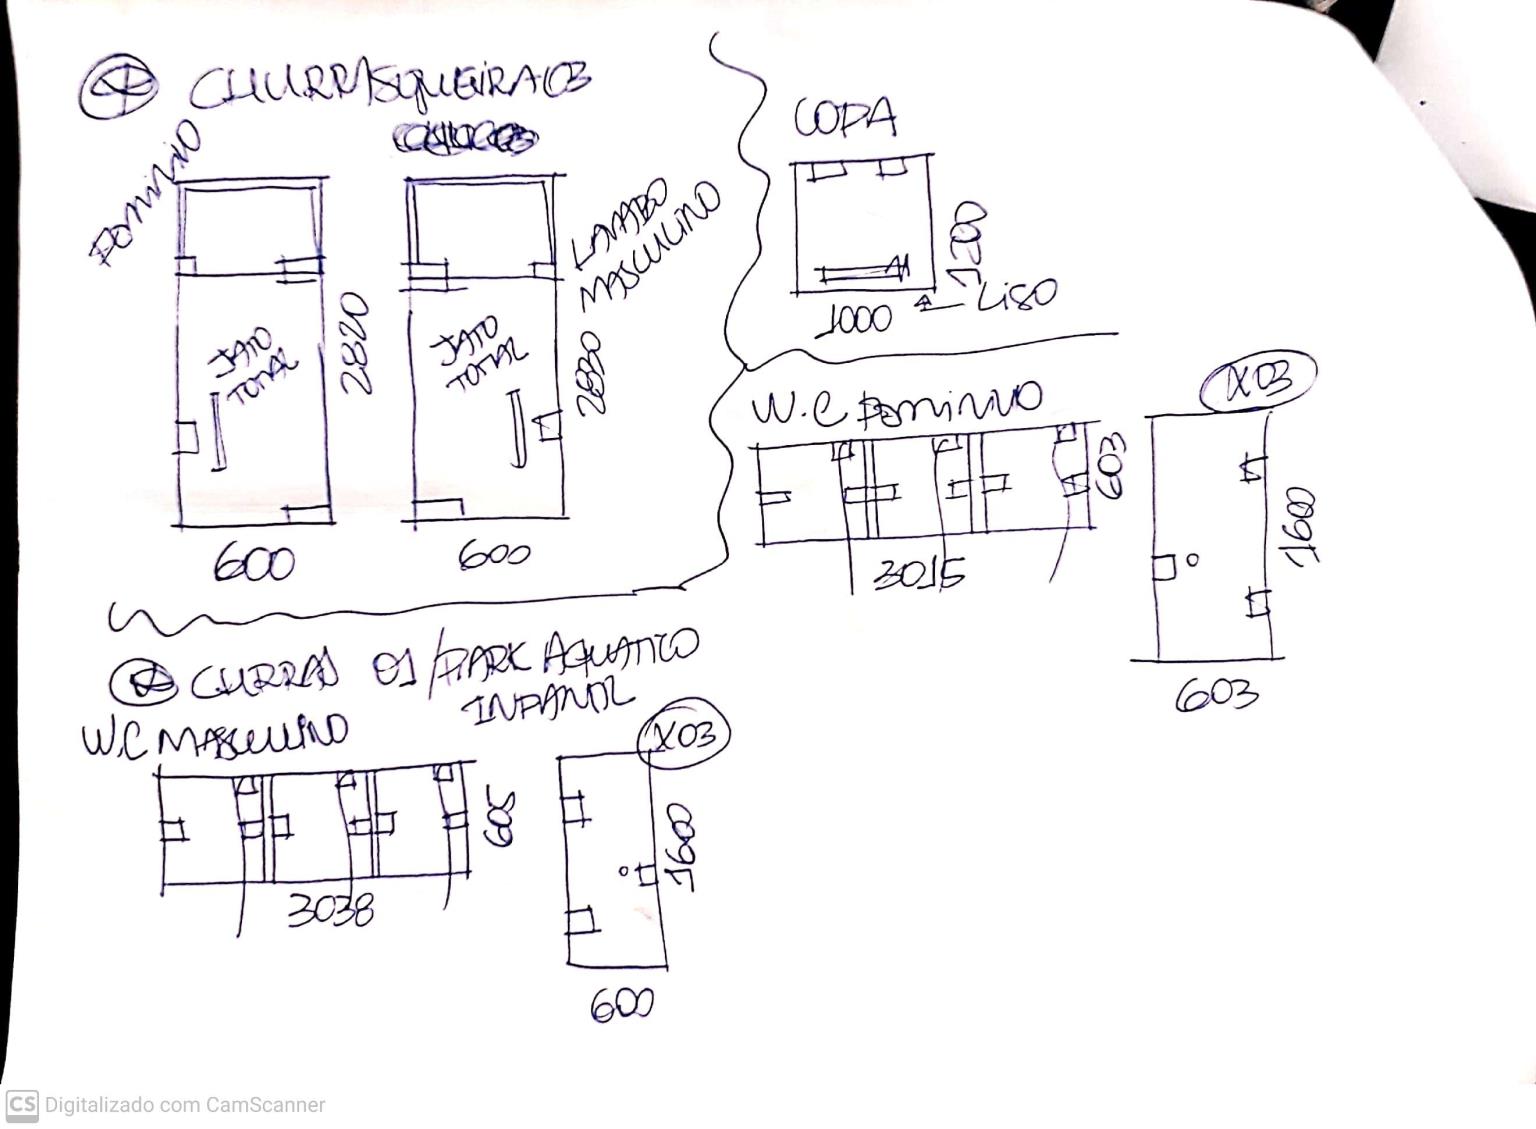 CHURRASQUEIRA 03
FOMINIO
LAVABO
MASCULINO
JATO
TOTAL
2820
600
JATO
TOTAL
2830
600
COPA
1200
1000
LISO
W.C FOMININO
603
3015
X03
1600
603
CURRAS 01/PARK AQUATICO
INFANTIL
W.C MASCULINO
605
3038
X03
1600
600
CS Digitalizado com CamScanner